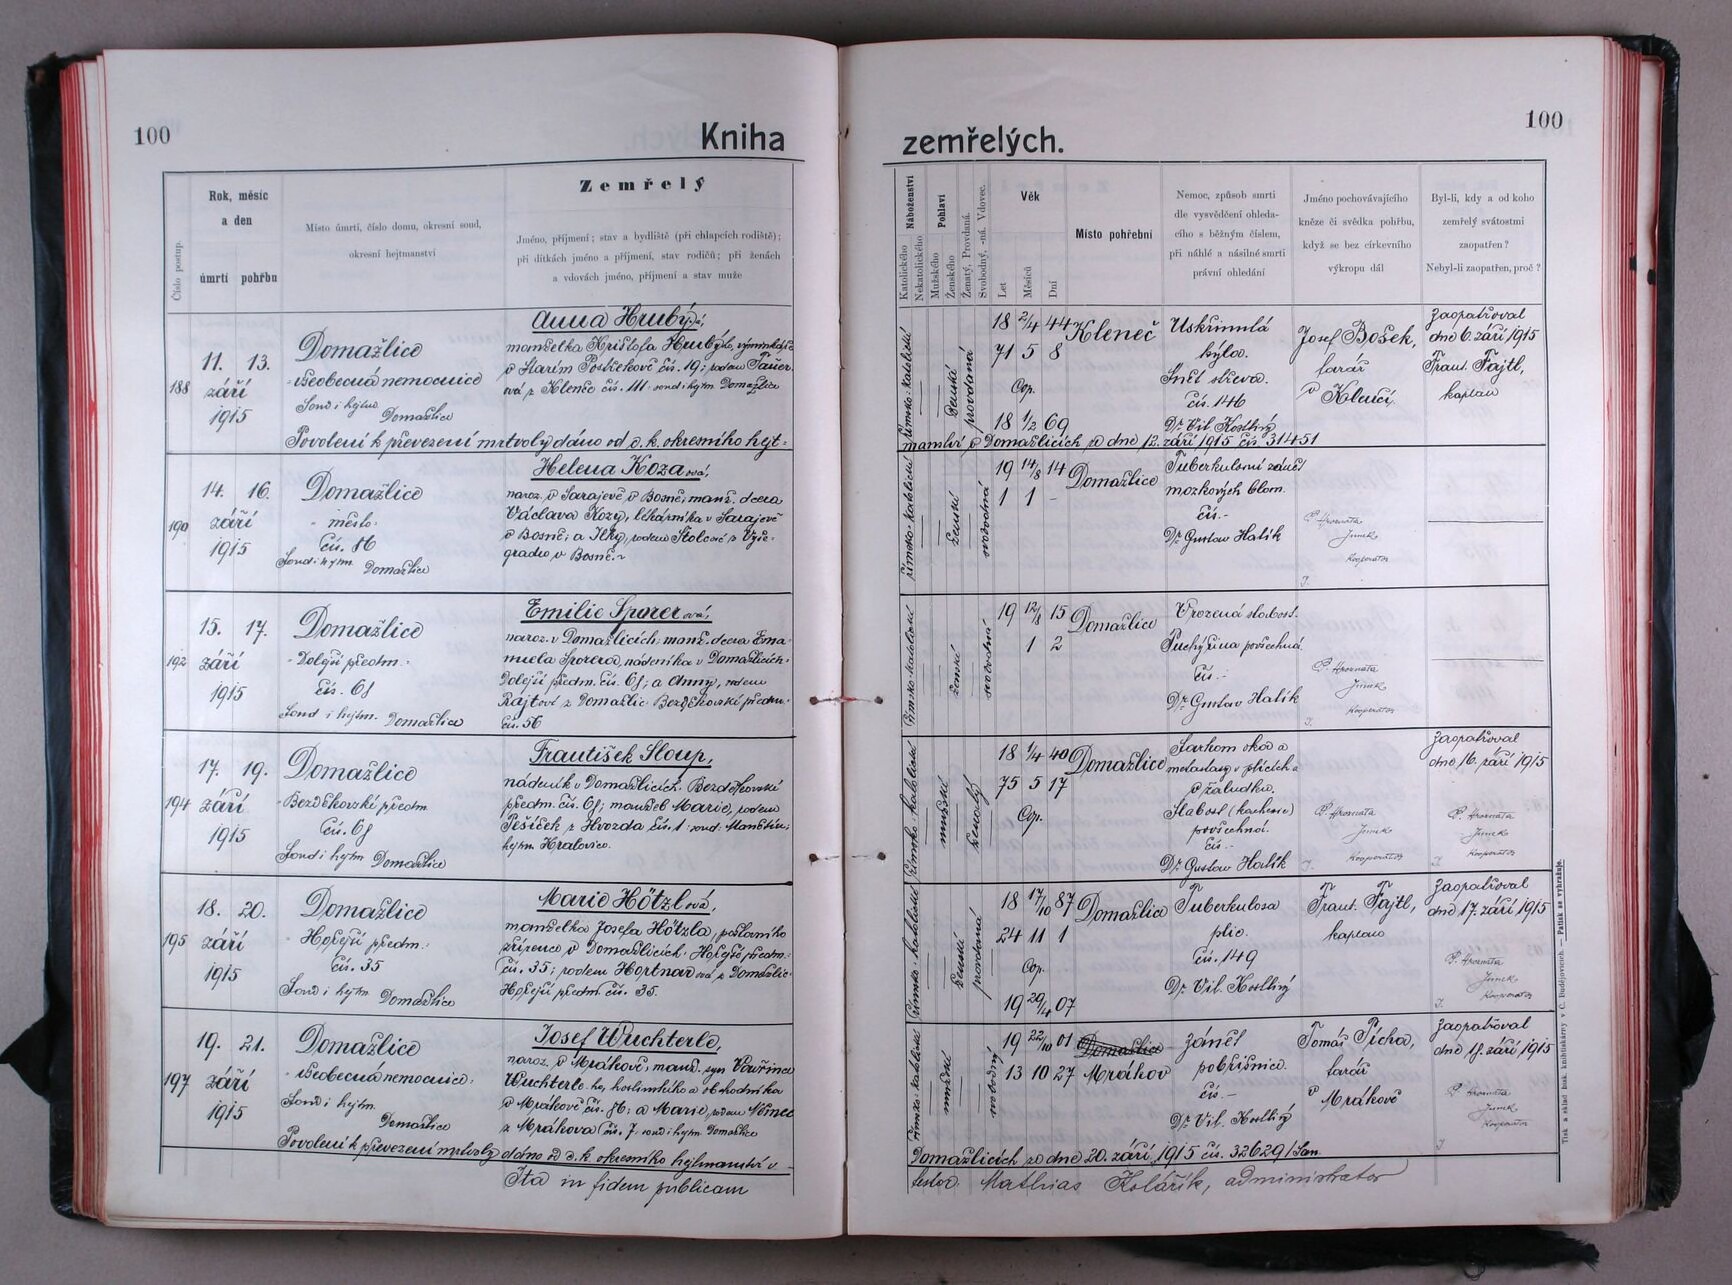 100
Kniha
Rok, měsíc
a den
úmrtí pohřbu
Číslo postup.
Místo úmrtí, číslo domu, okresní soud,
okresní hejtmanství
Zemřelý
Jméno, příjmení; stav a bydliště (při chlapcích rodiště);
při dítkách jméno a příjmení, stav rodičů; při ženách
a vdovách jméno, příjmení a stav muže
188
11. 13.
září
1915
Domažlice
všeobecná nemocnice
Soud i hejtm.
Domažlice
Anna Hrubý
manželka Krištofa
v Starém Postřekově čís. 19; rodem
ová z Klenče čís. 111: soud: hejtm Domažlice
Povolení k převezení mrtvoly dáno od c. k. okresního hejt=
190
14. 16.
září
1915
Domažlice
město:
čís. 86
Soud i hejtm
Domažlice
Helena Kozaová,
naroz. v Sarajevě v Bosně; manž. dcera
Václava Kozy, lékárníka v Sarajevě
v Bosně; a Ilky, rodem Štolcové z Više-
gradu v Bosně.
192
15. 17.
září
1915
Domažlice
Dolejší předm.:
čís. 68
Soud i hejtm. Domažlice
Emilie Sporerová,
naroz. v Domažlicích; manž. dcera Ema-
nuela Sporera, nádeníka v Domažlicích
Dolejší předm. čís. 68; a Anny, rodem
Rajtové z Domažlic Bezděkovské předm.
čís. 56
194
17. 19.
září
1915
Domažlice
Bezděkovské předm
čís. 68
Soud i hejtm Domažlice
František Sloup,
nádeník v Domažlicích. Bezděkovské
předm. čís. 68; manžel Marie, rodem
Pešíček z Hvozda čís. 1: soud: Manětín;
hejtm Kralovice.
195
18. 20.
září
1915
Domažlice
Hořejší předm.:
čís. 35
Soud i hejtm Domažlice
Marie Hötzlová,
manželka Josefa Hötzla, poštovního
zřízence v Domažlicích. Hořejší předm.:
čís. 35; rodem Hortnarová z Domažlic
Hořejší předm. čís. 35.
197
19. 21.
září
1915
Domažlice
všeobecná nemocnice:
Soud i hejtm.
Domažlice
Josef Wuchterle,
naroz. v Mrákově, manž. syn Vavřince
Wuchterle ho, hostinského a obchodníka
v Mrákově čís. 86: a Marie, rodem Němec
z Mrákova čís. 7. soud i hejtm Domažlice
Povolení k převezení mrtvoly dáno od c. k. okresního hejtmanství v
Ita in fidem publicam
100
zemřelých.
Náboženství
Katolického
Nekatolického
Pohlaví
Mužského
Ženského
Ženatý, Provdaná.
Svobodný, -ná. Vdovec.
Věk
Let
Měsíců
Dní
Místo pohřební
Nemoc, způsob smrti
dle vysvědčení ohleda-
cího s běžným číslem,
při náhlé a násilné smrti
právní ohledání
Jméno pochovávajícího
kněze či svědka pohřbu,
když se bez církevního
výkropu dál
Byl-li, kdy a od koho
zemřelý svátostmi
zaopatřen?
Nebyl-li zaopatřen, proč?
římsko-katolické
ženské
provdaná
18 2/4 44
71 5 8
Cop.
18 1/2 69
Kleneč
Uskřinulá
kýla.
Sněť střeva.
čís. 146
Dr. Vil. Kostliný
Josef Bošek,
farář
v Klenčí.
Zaopatřoval
dne 6. září 1915
Frant. Fajtl,
kaplan
manství v Domažlicích ze dne 12. září 1915 čís 31451
římsko-katolické
ženské
svobodná
19 14/8 14
1 1 -
Domažlice
Tuberkulosní zánět
mozkových blan.
čís.-
Dr. Gustav Halík
P. Hroznata
Junek
Kooperator
římsko-katolické
ženské
svobodná
19 12/8 15
1 2
Domažlice
Vrozená slabost.
Puchýřina povšechná
čís.-
Dr. Gustav Halík
P. Hroznata
Junek
Kooperator
římsko-katolické
mužské
ženatý
18 1/4 40
75 5 17
Cop.
Domažlice
Sarkom oka a
metastasy v plicích a
v žaludku.
Slabost (kachexie)
povšechná.
čís.-
Dr. Gustav Halík
P. Hroznata
Junek
Kooperator
Zaopatřoval
dne 16. září 1915
P. Hroznata
Junek
Kooperator
římsko-katolické
ženské
provdaná
18 17/10 87
24 11 1
Cop.
19 29/4 07
Domažlice
Tuberkulosa
plic.
čís. 149
Dr. Vil. Kostliný
Frant. Fajtl,
kaplan
Zaopatřoval
dne 17. září 1915
P. Hroznata
Junek
Kooperator
římsko-katolické
mužské
svobodný
19 22/10 01
13 10 27
Domažlice
Mrákov
Zánět
pobřišnice.
čís.-
Dr. Vil. Kostliný
Tomáš Pícha,
farář
v Mrákově
Zaopatřoval
dne 18. září 1915
P. Hroznata
Junek
Kooperator
Domažlicích ze dne 20. září 1915 čís. 32629/San.
testor. Mathias Kolářík, administrator
Tisk a sklad knihtiskárny v Č. Budějovicích. — Patisk se vyhražuje.